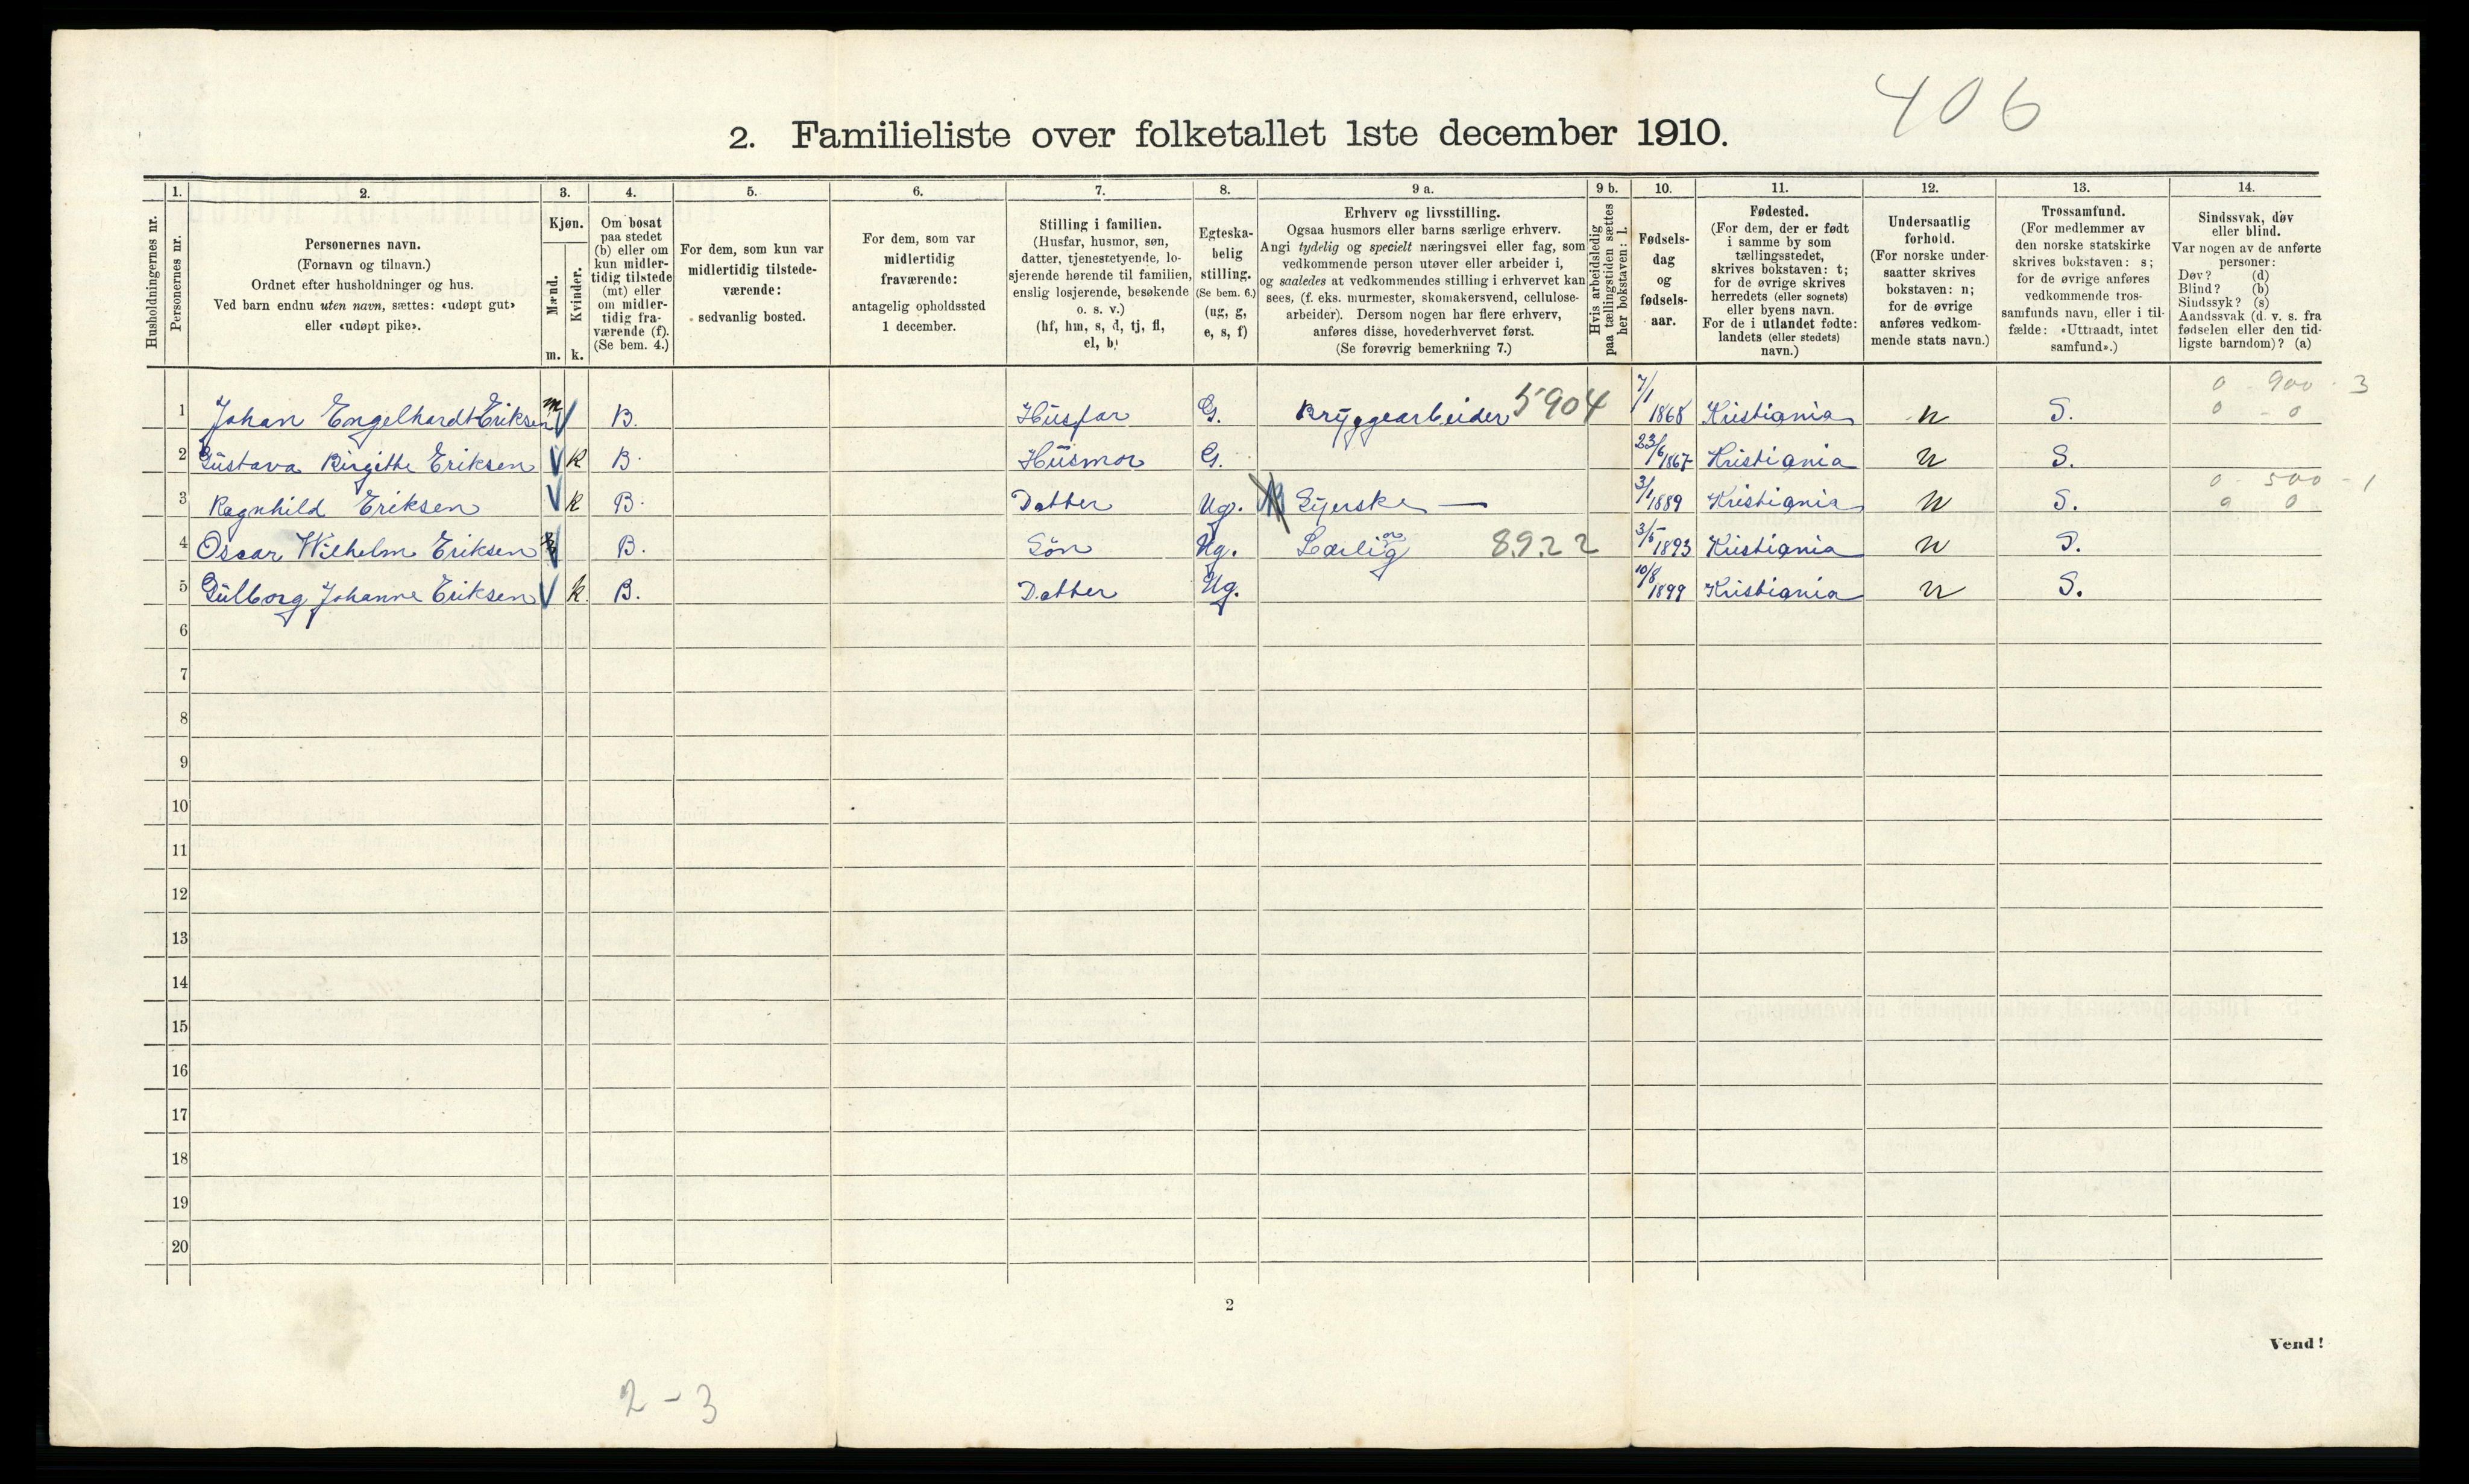 406
2. Familieliste over folketallet 1ste december 1910.
Husholdningernes nr.
1.
Personernes nr.
2.
Personernes navn.
(Fornavn og tilnavn.)
Ordnet efter husholdninger og hus.
Ved barn endnu uten navn, sættes: «udøpt gut»
eller «udøpt pike».
3.
Kjøn.
Mænd.
Kvinder.
m. k.
4.
Om bosat
paa stedet
(b) eller om
kun midler-
tidig tilstede
(mt) eller
om midler-
tidig fra-
værende (f).
(Se bem. 4.)
5.
For dem, som kun var
midlertidig tilstede-
værende:
sedvanlig bosted.
6.
For dem, som var
midlertidig
fraværende:
antagelig opholdssted
1 december.
7.
Stilling i familien.
(Husfar, husmor, søn,
datter, tjenestetyende, lo-
sjerende hørende til familien,
enslig losjerende, besøkende
o. s. v.)
(hf, hm, s, d, tj, fl,
el, b)
8.
Egteska-
belig
stilling.
(Se bem. 6.)
(ug, g,
e, s, f)
9 a.
Erhverv og livsstilling.
Ogsaa husmors eller barns særlige erhverv.
Angi tydelig og specielt næringsvei eller fag, som
vedkommende person utøver eller arbeider i,
og saaledes at vedkommendes stilling i erhvervet kan
sees, (f. eks. murmester, skomakersvend, cellulose-
arbeider). Dersom nogen har flere erhverv,
anføres disse, hovederhvervet først.
(Se forøvrig bemerkning 7.)
9 b.
Hvis arbeidsledig
paa tællingstiden sættes
her bokstaven: l.
10.
Fødsels-
dag
og
fødsels-
aar.
11.
Fødested.
(For dem, der er født
i samme by som
tællingsstedet,
skrives bokstaven: t;
for de øvrige skrives
herredets (eller sognets)
eller byens navn.
For de i utlandet fødte:
landets (eller stedets)
navn.)
12.
Undersaatlig
forhold.
(For norske under-
saatter skrives
bokstaven: n;
for de øvrige
anføres vedkom-
mende stats navn.)
13.
Trossamfund.
(For medlemmer av
den norske statskirke
skrives bokstaven: s;
for de øvrige anføres
vedkommende tros-
samfunds navn, eller i til-
fælde: «Uttraadt, intet
samfund».)
14.
Sindssvak, døv
eller blind.
Var nogen av de anførte
personer:
Døv? (d)
Blind? (b)
Sindssyk? (s)
Aandssvak (d. v. s. fra
fødselen eller den tid-
ligste barndom)? (a)
0 - 900 - 3
1 Johan Engelhardt Eriksen m B. Husfar G. Bryggearbeider 5904 7/1 1868 Kristiania n S. 0 - 0
2 Gustava Birgitte Eriksen k B. Husmor G. 23/6 1867 Kristiania n S.
0 - 500 - 1
3 Ragnhild Eriksen k B. Datter Ug. Syerske — 3/1 1889 Kristiania n S. 0 0
4 Oscar Wilhelm Eriksen B. Søn Ug. Lærling 8922 3/5 1893 Kristiania n S.
5 Gulborg Johanne Eriksen k. B. Datter Ug. 10/8 1899 Kristiania n S.
6
7
8
9
10
11
12
13
14
15
16
17
18
19
20
2
Vend!
2-3